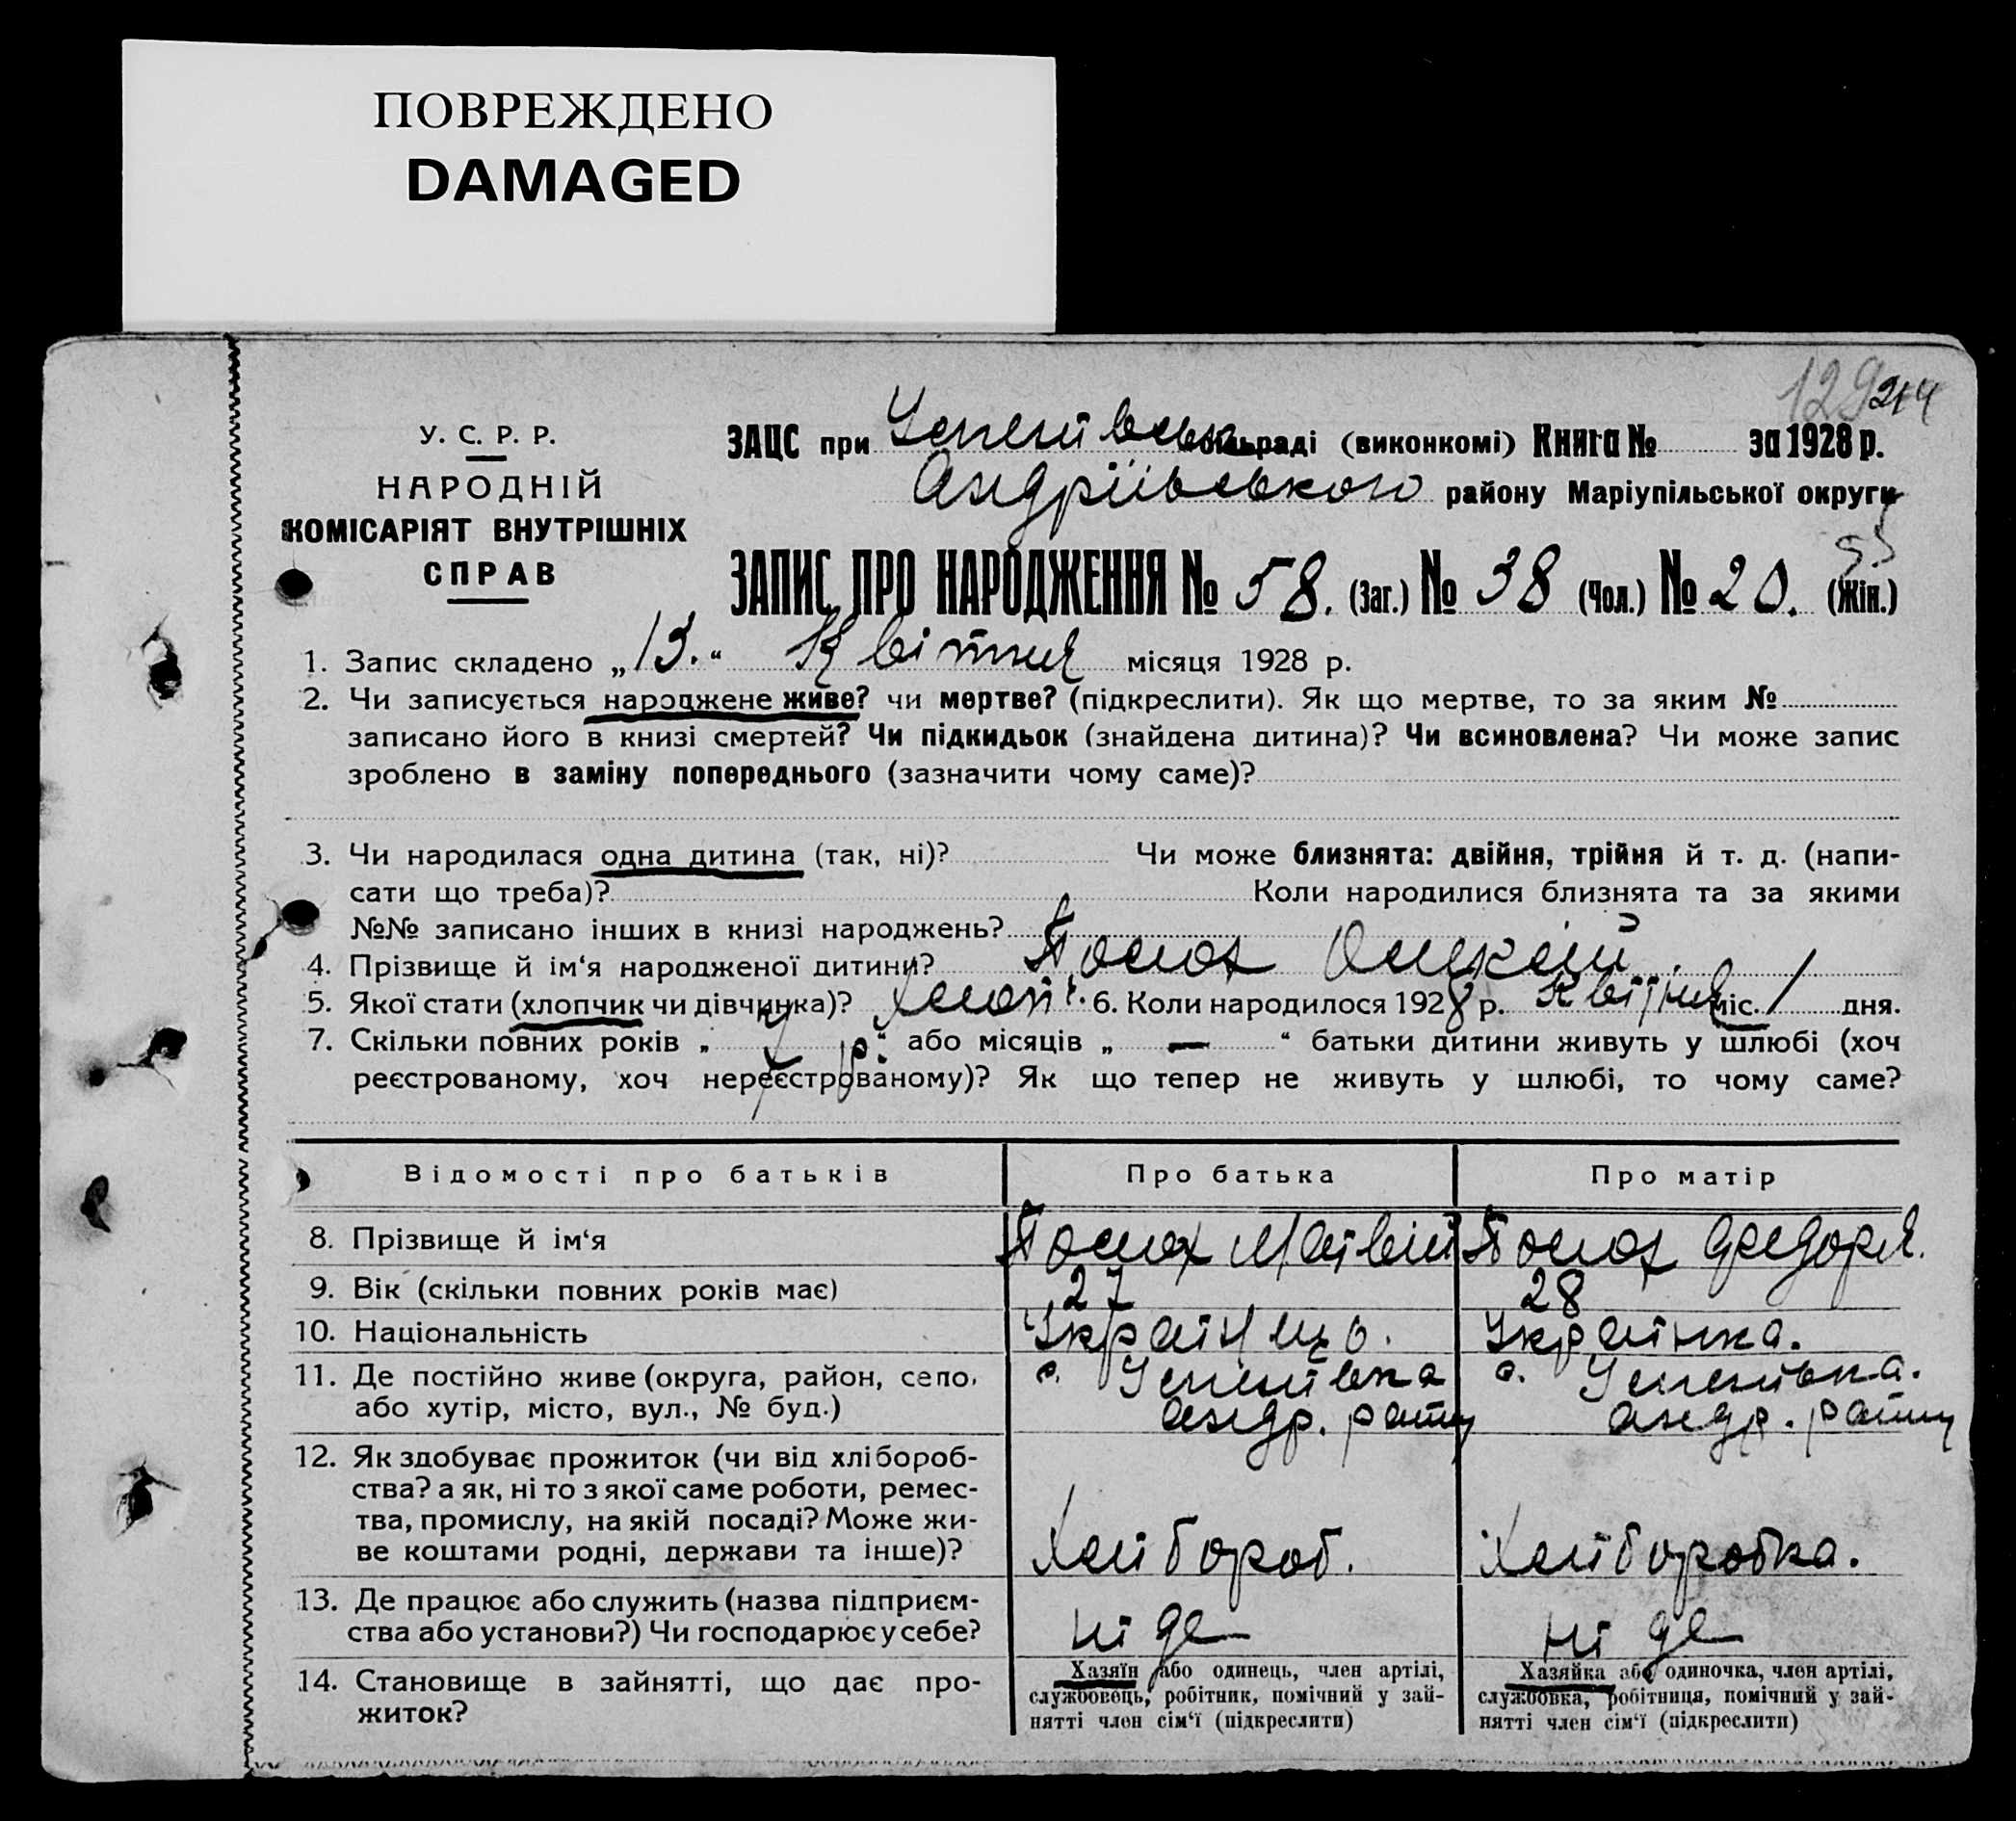 ПОВРЕЖДЕНО
DAMAGED
129 214
У. С. Р. Р.
НАРОДНІЙ
КОМІСАРІЯТ ВНУТРІШНІХ
СПРАВ
ЗАЦС при Успенівськ раді (виконкомі) Книга № за 1928 р.
Андріївського району Маріупільської округи
ЗАПИС ПРО НАРОДЖЕННЯ № 58. (Заг.) № 38 (Чол.) № 20. (Жін.)
1. Запис складено „13.“ Квітня місяця 1928 р.
2. Чи записується народжене живе? чи мертве? (підкреслити). Як що мертве, то за яким №
записано його в книзі смертей? Чи підкидьок (знайдена дитина)? Чи всиновлена? Чи може запис
зроблено в заміну попереднього (зазначити чому саме)?
3. Чи народилася одна дитина (так, ні)? Чи може близнята: двійня, трійня й т. д. (напи-
сати що треба)? Коли народилися близнята та за якими
№№ записано інших в книзі народжень?
4. Прізвище й ім‘я народженої дитини?
5. Якої стати (хлопчик чи дівчинка)? Хлопч. 6. Коли народилося 1928 р. Квітня міс. 1 дня.
7. Скільки повних років „ р.“ або місяців „ — “ батьки дитини живуть у шлюбі (хоч
реєстрованому, хоч нереєстрованому)? Як що тепер не живуть у шлюбі, то чому саме?
Відомості про батьків Про батька Про матір
8. Прізвище й ім‘я Матвій
9. Вік (скільки повних років має) 27 28
10. Національність Українць. Українка.
11. Де постійно живе (округа, район, село, с. Успенівка с. Успенівка.
або хутір, місто, вул., № буд.) Андр. райну Андр. райну
12. Як здобуває прожиток (чи від хлібороб-
ства? а як, ні то з якої саме роботи, ремес-
тва, промислу, на якій посаді? Може жи-
ве коштами родні, держави та інше)? Хлібороб. Хліборобка.
13. Де працює або служить (назва підприєм-
ства або установи?) Чи господарює у себе? ні де ні де
14. Становище в зайнятті, що дає про-
житок?
Хазяїн або одинець, член артілі,
службовець, робітник, помічний у зай-
нятті член сім‘ї (підкреслити)
Хазяйка або одиночка, член артілі,
службовка, робітниця, помічний у зай-
нятті член сім‘ї (підкреслити)